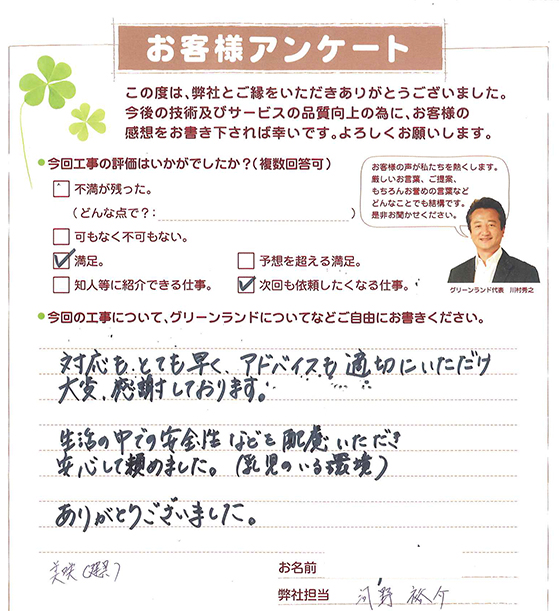 お客様アンケート
この度は、弊社とご縁をいただきありがとうございました。
今後の技術及びサービスの品質向上の為に、お客様の
感想をお書き下されば幸いです。よろしくお願いします。
●今回工事の評価はいかがでしたか？（複数回答可）
不満が残った。
（どんな点で？：　　　　）
可もなく不可もない。
満足。
予想を超える満足。
知人等に紹介できる仕事。
次回も依頼したくなる仕事。
お客様の声が私たちを熱くします。
厳しいお言葉、ご提案、
もちろんお誉めの言葉など
どんなことでも結構です。
是非お聞かせください。
グリーンランド代表　川村秀之
●今回の工事について、グリーンランドについてなどご自由にお書きください。
対応も、とても早く、アドバイスも適切にいただけ
大変、感謝しております。
生活の中での安全性などを配慮いただき
安心して頼めました。（乳児のいる環境）
ありがとうございました。
お名前
弊社担当　河野 裕介